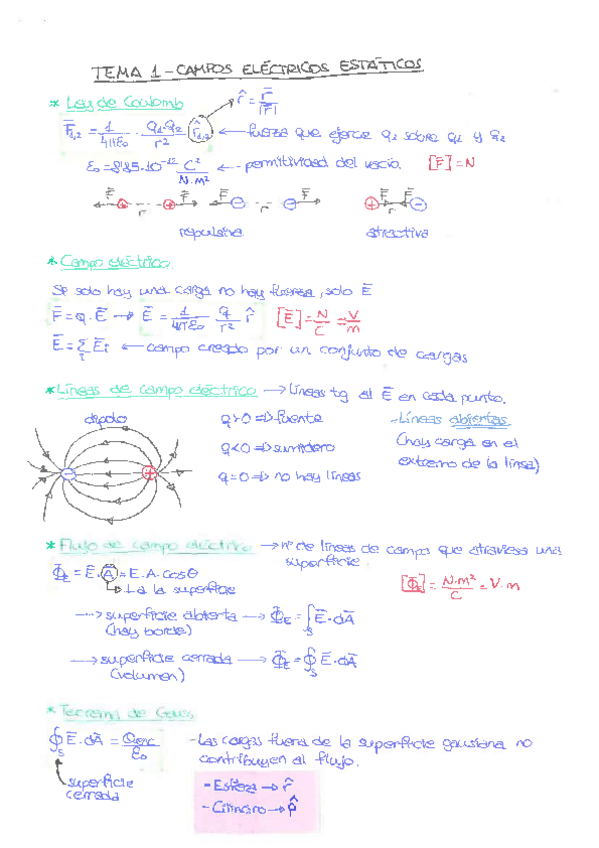 TEMA 1 - CAMPOS ELÉCTRICOS ESTÁTICOS
* Ley de Coulomb
r̂ = r̄/|r̄|
F̄₁,₂ = 1/4πε₀ · q₁·q₂/r² r̂₁,₂ ← fuerza que ejerce q₂ sobre q₁ y q₂
ε₀ = 8'85·10⁻¹² C²/N·m² ← permitividad del vacío. [F̄] = N
F̄ + r + F̄ F̄ - r - F̄ + F̄ F̄ -
repulsiva atractiva
* Campo eléctrico
Se solo hay una carga no hay fuerza, solo Ē
F̄ = q·Ē → Ē = 1/4πε₀ q/r² r̂ [Ē] = N/C = V/m
Ē = Σᵢ Ēᵢ ← campo creado por un conjunto de cargas
* Líneas de campo eléctrico → líneas tg al Ē en cada punto.
dipolo q>0 => fuente - Líneas abiertas
q<0 => sumidero (hay carga en el
q=0 => no hay líneas extremo de la línea)
- +
* Flujo de campo eléctrico → nº de líneas de campo que atraviesa una
superficie.
Φ̄E = Ē·Ā = E·A·cosθ [Φ̄E] = N·m²/C = V·m
→ ⊥ a la superficie
---> superficie abierta → Φ̄E = ∫s Ē·dĀ
(hay borde)
---> superficie cerrada → Φ̄E = ∮s Ē·dĀ
(volumen)
* Teorema de Gauss
∮s Ē·dĀ = Qenc/ε₀ - Las cargas fuera de la superficie gausiana no
contribuyen al flujo.
superficie
cerrada
- Esfera → r̂
- Cilindro → ρ̂